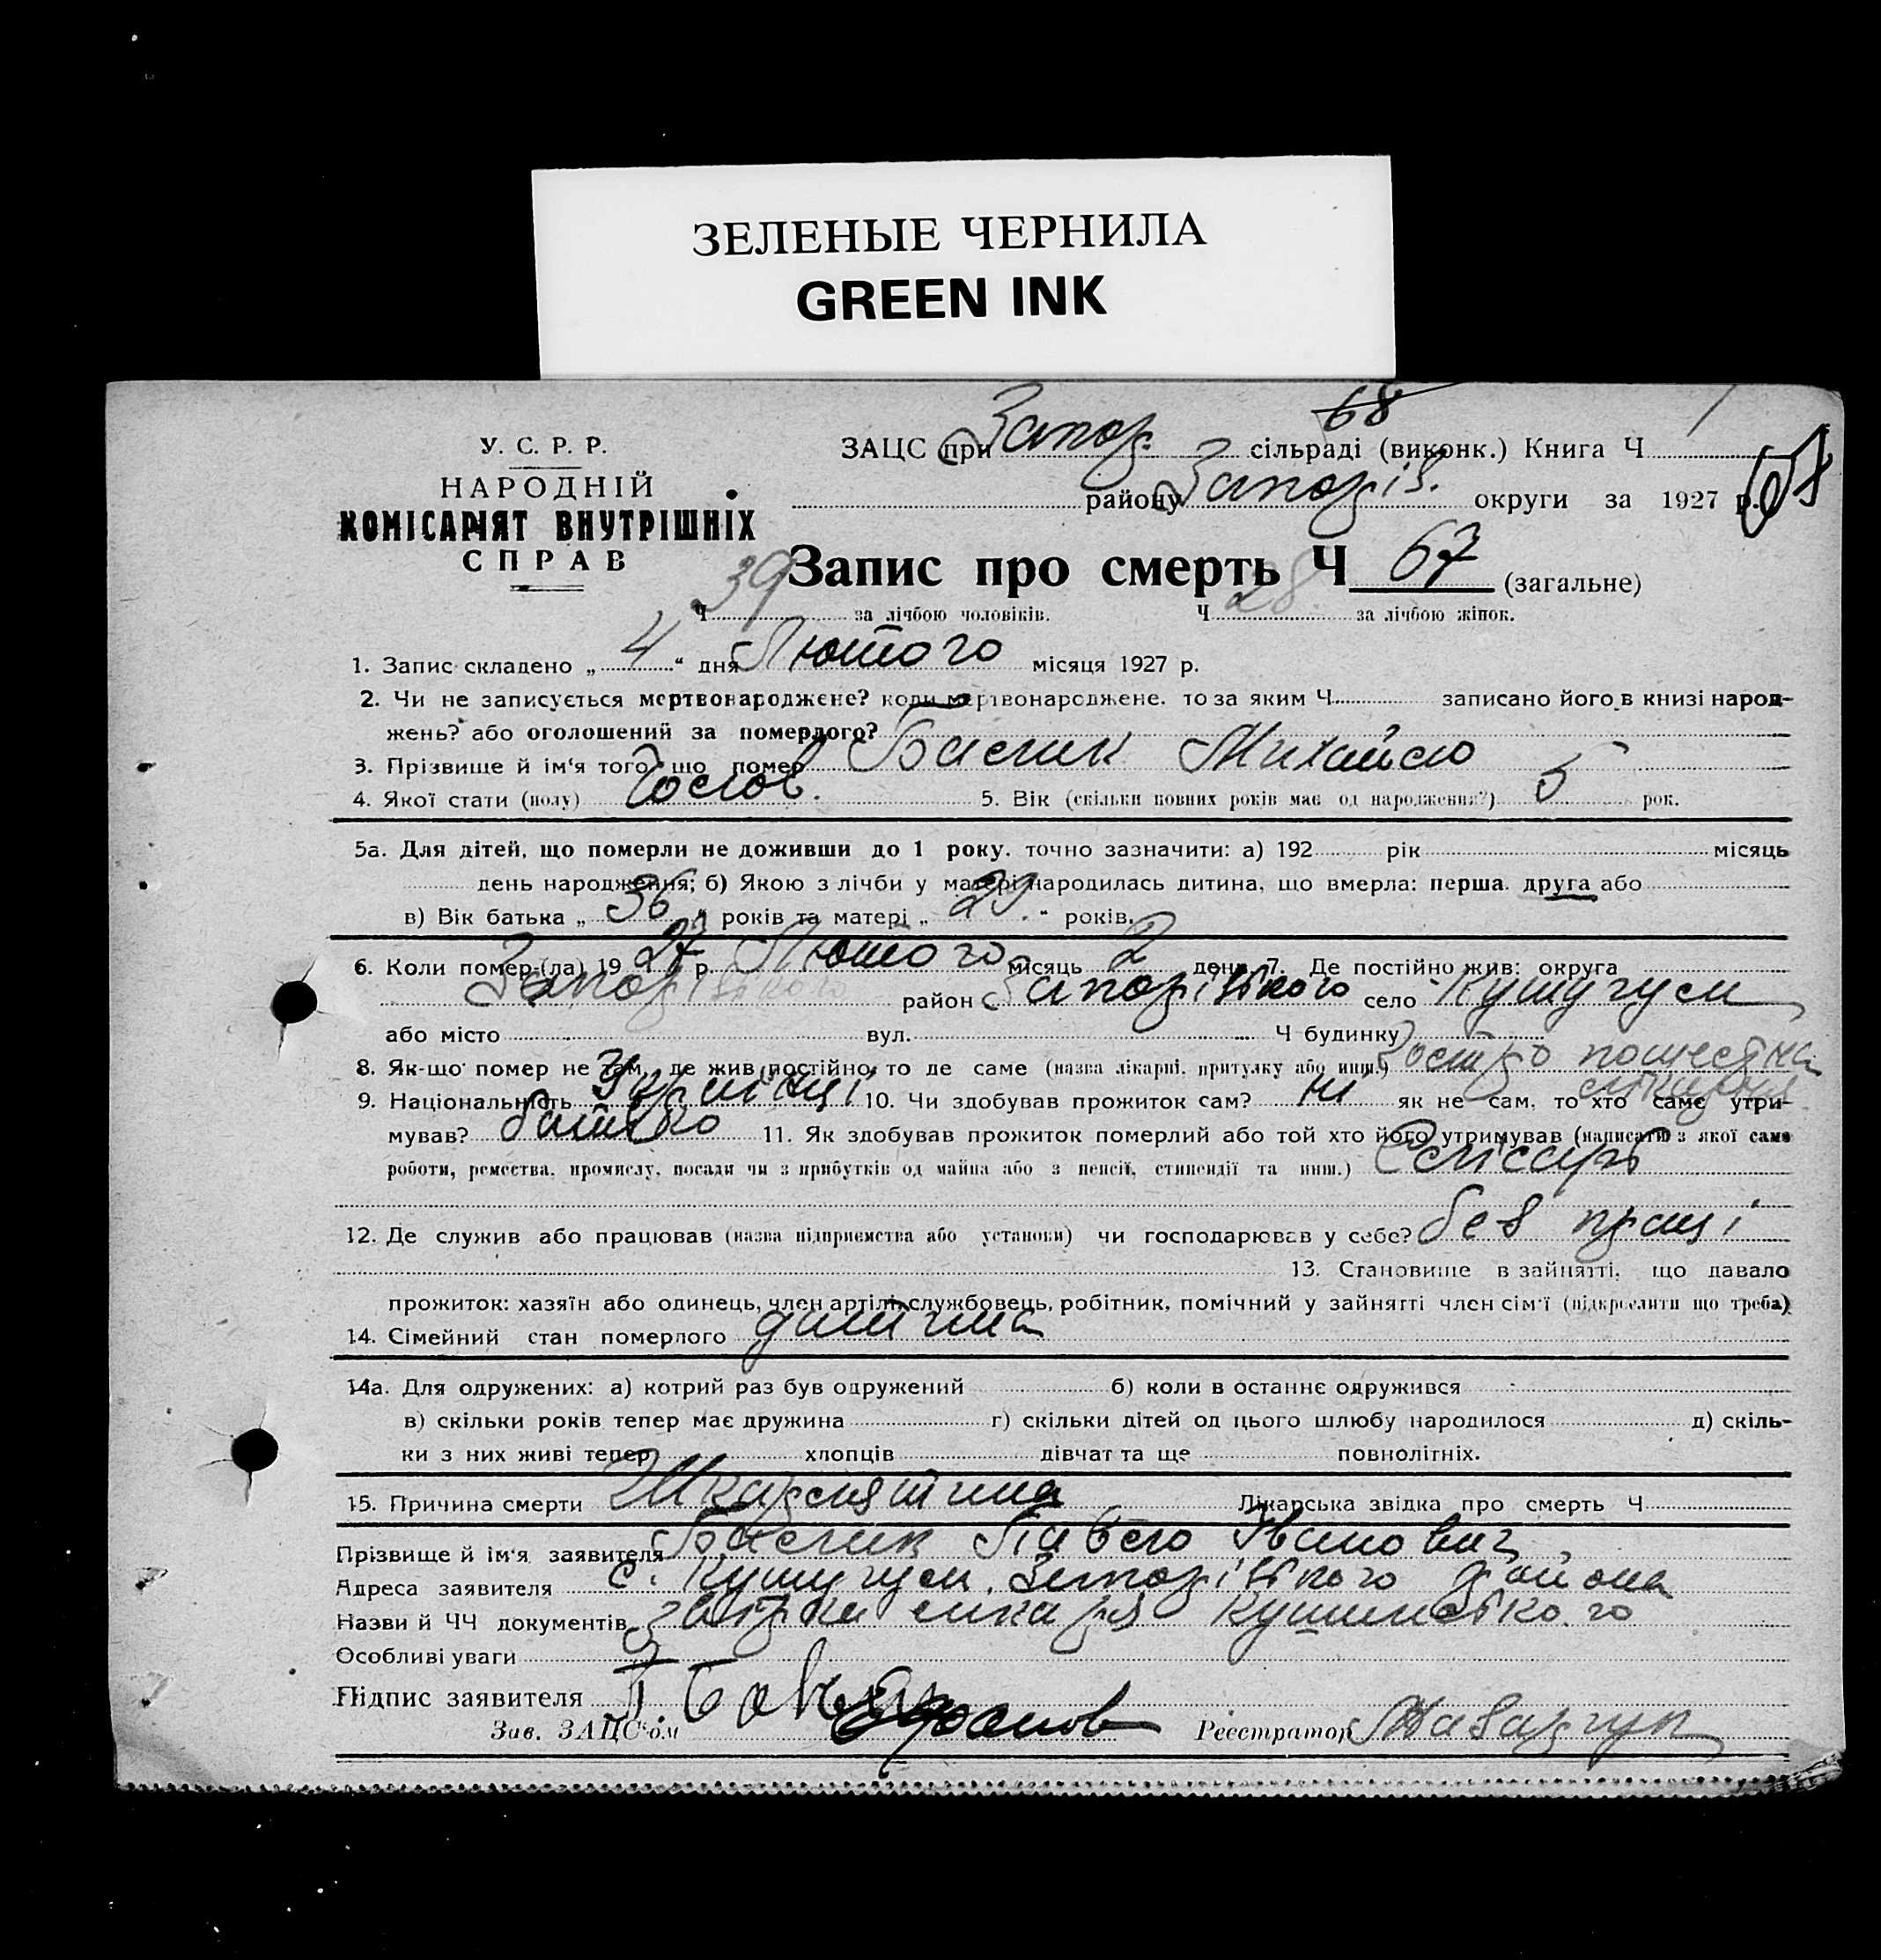 ЗЕЛЕНЫЕ ЧЕРНИЛА
GREEN INK
68
У. С. Р. Р.
НАРОДНІЙ
КОМІСАРІЯТ ВНУТРІШНІХ
СПРАВ
ЗАЦС при Запор. сільраді (виконк.) Книга Ч 1
району Запоріз. округи за 1927 р. 68
Запис про смерть Ч 67 (загальне)
Ч 39 за лічбою чоловіків. Ч 28 за лічбою жінок.
1. Запис складено „ 4 “ дня Лютого місяця 1927 р.
2. Чи не записується мертвонароджене? коли мертвонароджене, то за яким Ч записано його в книзі народ-
жень? або оголошений за померлого?
3. Прізвище й ім'я того, що помер Баелик Михайло
4. Якої стати (полу) чолов. 5. Вік (скільки повних років має од народження?) 5 рок.
5а. Для дітей, що померли не доживши до 1 року, точно зазначити: а) 192 рік місяць
день народження; б) Якою з лічби у матері народилась дитина, що вмерла: перша, друга або
в) Вік батька „ 36 “ років та матері „ 29 “ років.
6. Коли помер-(ла) 1927 р. Лютого місяць 2 день 7. Де постійно жив: округа
Запорізького район Запорізького село Кушугум
або місто вул. Ч будинку
8. Як-що помер не там, де жив постійно, то де саме (назва лікарні, притулку або инш.)
9. Національність Українці 10. Чи здобував прожиток сам? ні як не сам, то хто саме утри-
мував? батько 11. Як здобував прожиток померлий або той хто його утримував (написати з якої саме
роботи, ремества, промислу, посади чи з прибутків од майна або з пенсії, стипендії та инш.) Слюсарь
12. Де служив або працював (назва підприємства або установи) чи господарював у себе? без праці
13. Становище в зайнятті, що давало
прожиток: хазяїн або одинець, член артілі, службовець, робітник, помічний у зайнятті член сім'ї (підкреслити що треба)
14. Сімейний стан померлого дитина
14а. Для одружених: а) котрий раз був одружений б) коли в останнє одружився
в) скільки років тепер має дружина г) скільки дітей од цього шлюбу народилося д) скіль-
ки з них живі тепер хлопців дівчат та ще повнолітніх.
15. Причина смерти Шкарлятина Лікарська звідка про смерть Ч
Прізвище й ім'я заявителя Павло Іванович
Адреса заявителя с. Кушугум, Запорізького района
Назви й ЧЧ документів лікаря
Особливі уваги
Підпис заявителя
Зав. ЗАЦС'ом Реєстратор